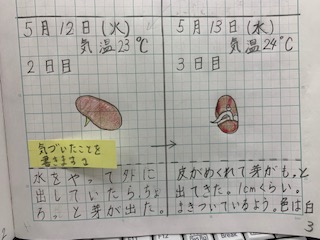 5月12日(火)
気温23℃
2日目
気づいたことを
書きます。
水をやって外に
出していたらちょ
ろっと芽が出た。
2
5月13日(水)
気温24℃
3日目
皮がめくれて芽がもっと
出てきた。1cmくらい。
まきついているよう。色は白
3